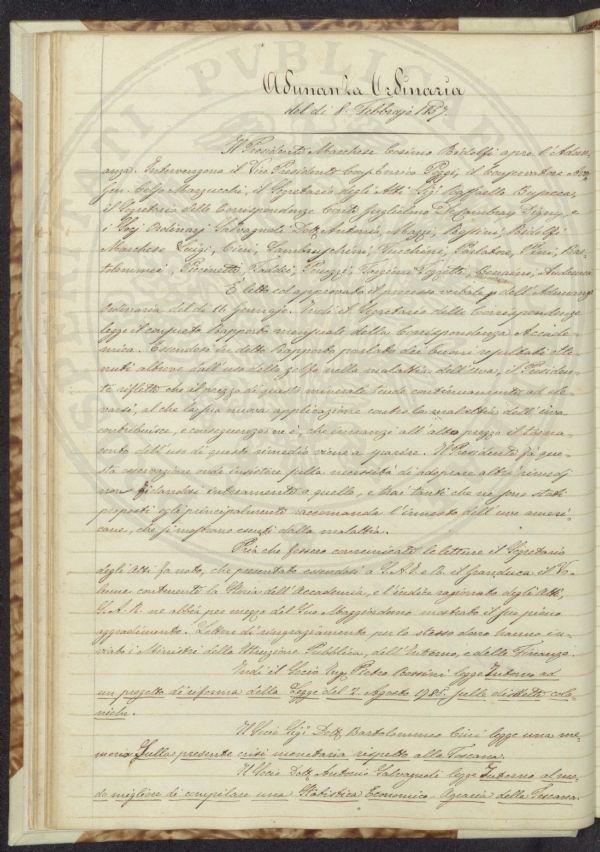 Adunanza Ordinaria
del dì 8. Febbrajo 1857.
Il Presidente Marchese Cosimo Ridolfi apre l'Adun-
anza. Intervengono il Vice Presidente Enrico Poggi, il
Celso Marzucchi, il Segretario degli Atti Raffaello Busacca,
il Segretario delle Corrispondenze Conte Guglielmo De Cambray Digny, e
i Socj Ordinarj Salvagnoli Dott. Antonio, Mazzi, Rossini, Ridolfi
Marchese Luigi, Cini, Lambruschini, Parlatore, Bar-
tolommei, Taddei, Peruzzi,
È letto ed approvato il processo verbale dell'Adunanza
Ordinaria del dì 11 Gennajo. Indi il Segretario delle Corrispondenze
legge il consueto Rapporto mensuale della Corrispondenza Accade-
mica. Essendosi in detto Rapporto parlato dei buoni resultati otte-
nuti altrove dall'uso dello zolfo nella malattia dell'uva, il Presiden-
te riflette che il prezzo di questo minerale tende continuamente ad ele-
varsi, al che la sua nuova applicazione contro la malattia dell'uva
contribuisce, e conseguenza ne è, che innanzi all'alto prezzo il torna-
conto dell'uso di questo rimedio viene a sparire. Il Presidente fa que-
sta osservazione onde insistere sulla necessità di adoprare altri rimedj
non fidandosi intieramente a quello, e tanti che ne sono stati
proposti egli principalmente raccomanda l'innesto dell'uve ameri-
cane, che si mostrano esenti dalla malattia.
Pria che fossero comunicate le letture il Segretario
degli Atti fa noto, che presentato essendosi a S.A.I. e R. il Granduca il Vo-
lume contenente la Storia dell'Accademia, e l'indice ragionato degli Atti,
S.A.R. ne abbia per mezzo del Suo Maggiordomo mostrato il suo pieno
aggradimento. Lettere di ringraziamento per lo stesso dono hanno in-
viato i Ministri della Istruzione Pubblica, dell'Interno, e delle Finanze.
Indi il Socio Ing. Pietro Rossini legge Intorno ad
un progetto di riforma della Legge del 2. Agosto 1785. sulle disdette colo-
niche.
Il Socio Sig. Dott. Bartolommeo Cini legge una me-
moria Sulla presente crisi monetaria rispetto alla Toscana.
Il Socio Dott. Antonio Salvagnoli legge Intorno al mo-
do migliore di compilare una Statistica Economica Agraria della Toscana.